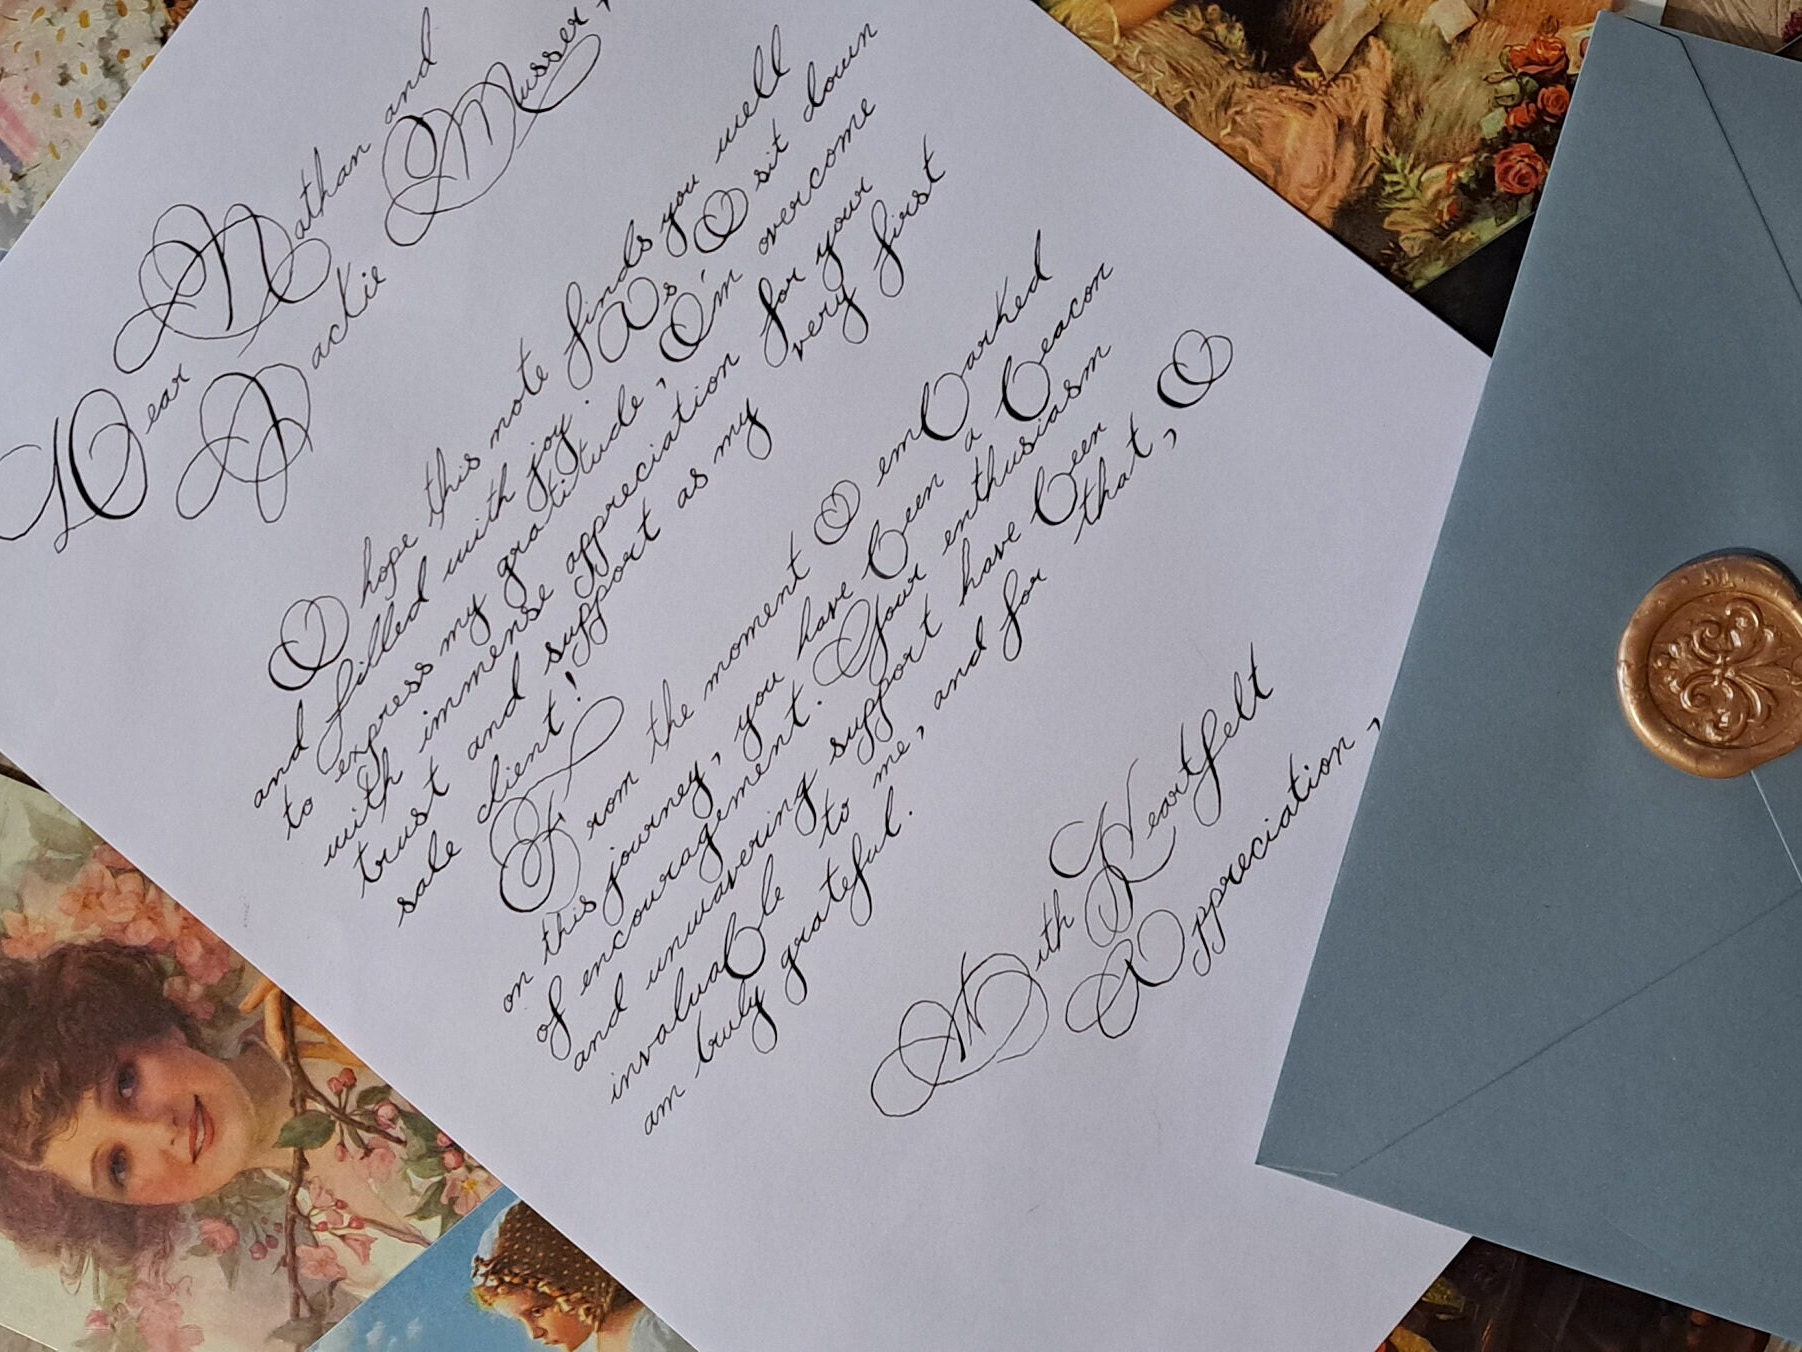 Dear Nathan and
Jackie Musser,
I hope this note finds you well
and filled with joy. As I sit down
to express my gratitude, I'm overcome
with immense appreciation for your
trust and support as my very first
sale client!
From the moment I embarked
on this journey, you have been a beacon
of encouragement. Your enthusiasm
and unwavering support have been
invaluable to me, and for that, I
am truly grateful.
With Heartfelt
Appreciation,